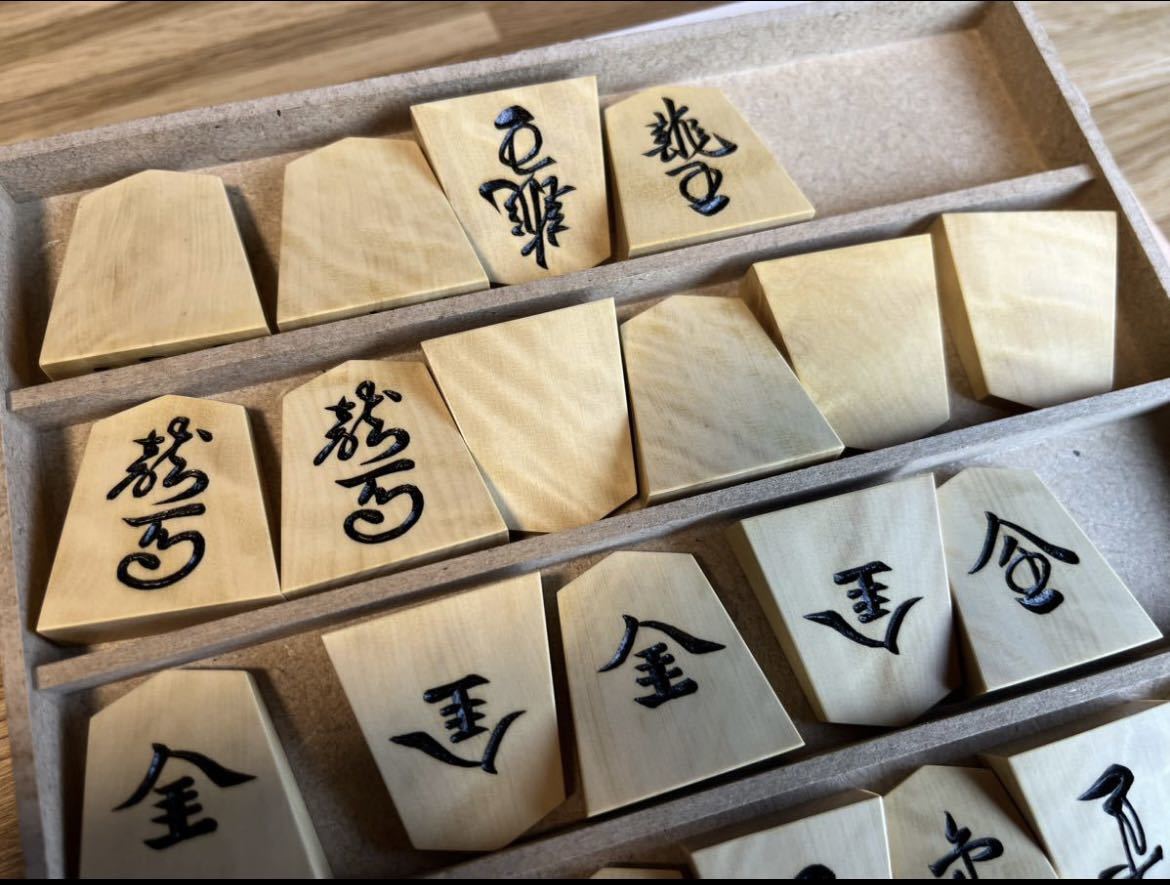 龍王
龍王
龍馬
龍馬
金
金
金
金
金